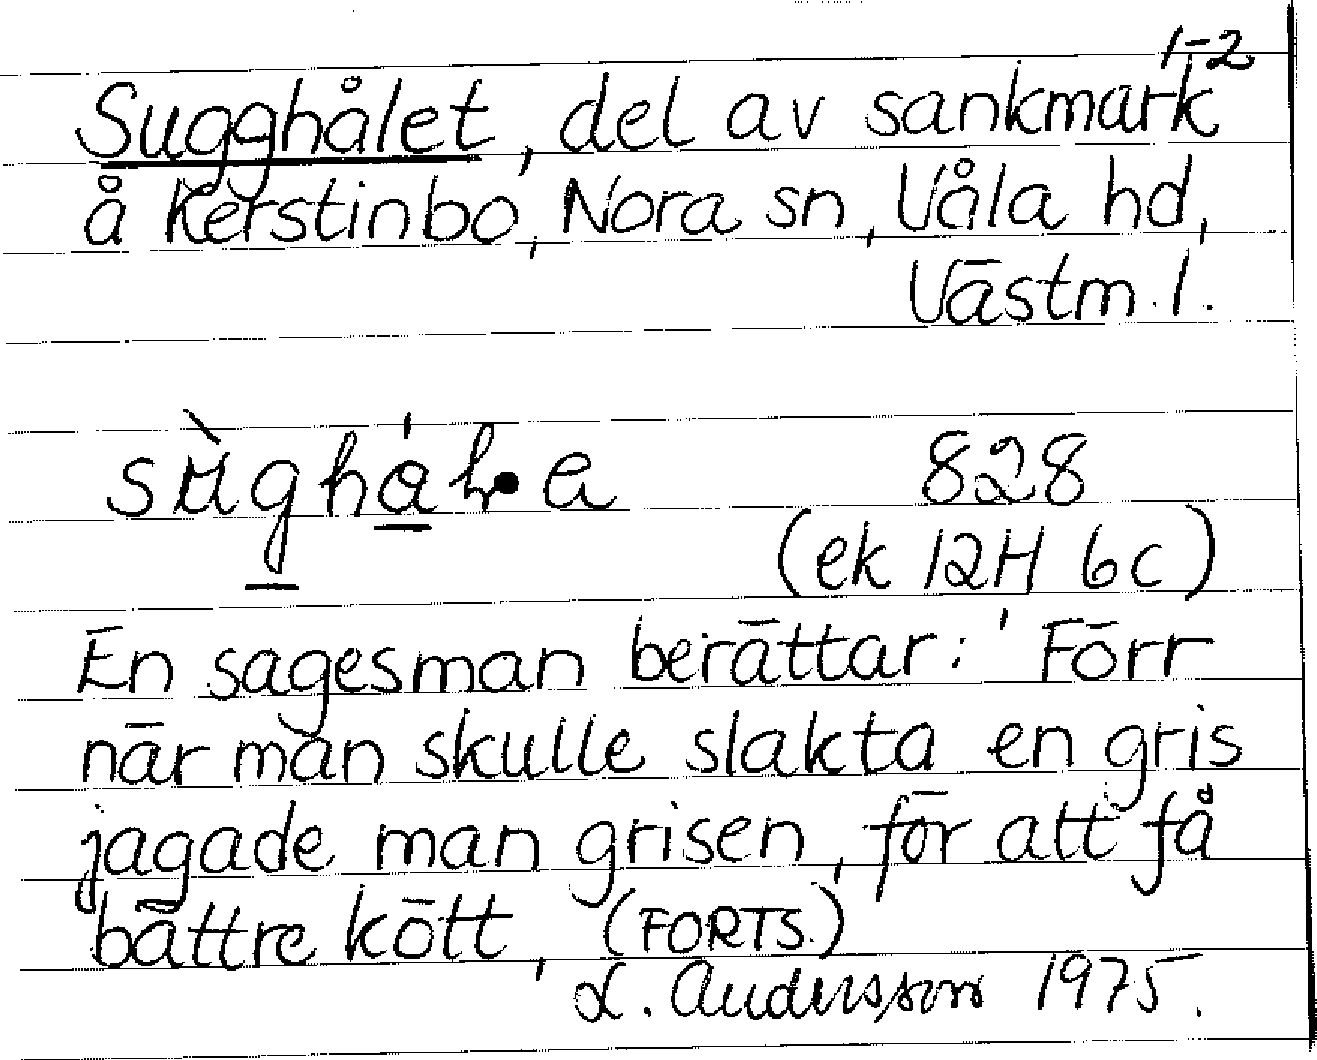 1-2
Sugghålet, del av sankmark
å Kerstinbo, Nora sn, Våla hd,
Västm. l.
sùghá̱l·a 828
(ek 12H 6c)
En sagesman berättar: 'Förr
när man skulle slakta en gris
jagade man grisen, för att få
bättre kött, (FORTS.)
L. Andersson 1975.